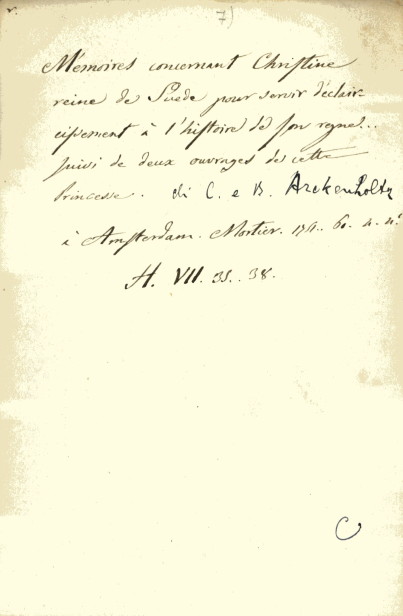 7)
Mémoires concernant Christine
reine de Suede pour servir d'éclair
cissement à l'histoire de son regne...
suivi de deux ouvrages de cette
Princesse. di C. e B. Arckenholtz
à Amsterdam. Mortier. 60. 4. 4.º
H. VII. 35.. 38.
C